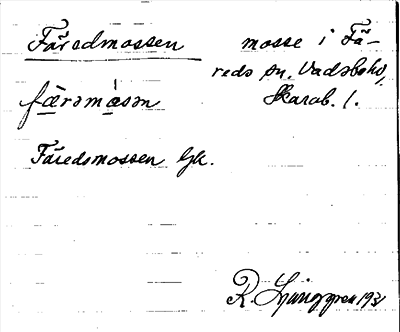 Färedmossen
mosse i Fä-
reds sn, Vadsbohd,
Skarab. l.
fæ̀rəmȧ̀sən
Färedsmossen Gk.
R. Ljunggren 1931